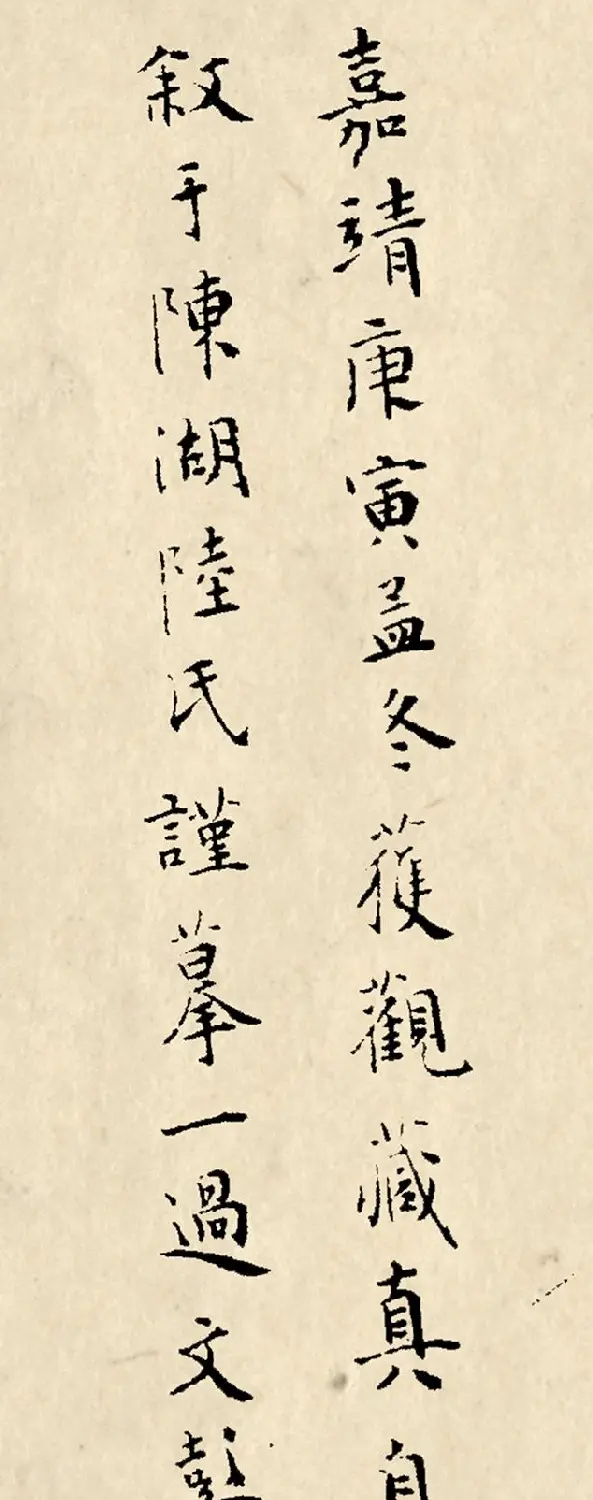 嘉靖庚寅孟冬獲觀藏真自
敘于陳湖陸氏謹摹一過文彭